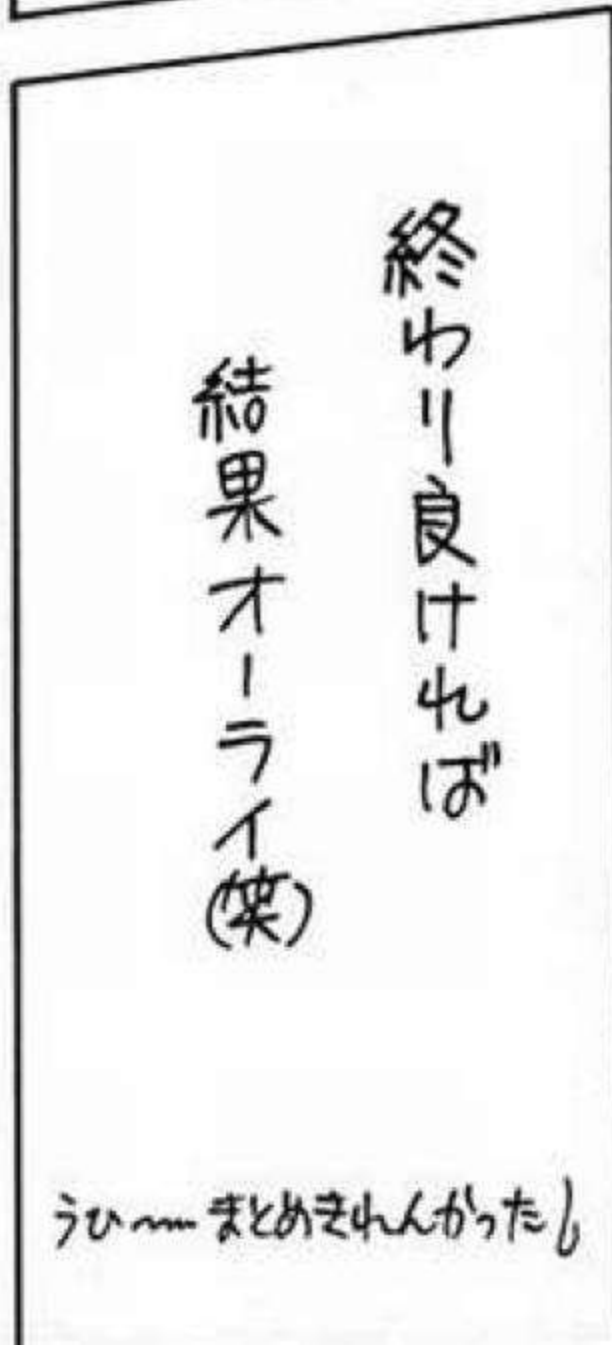 終わり良ければ
結果オーライ(笑)
うひ〜〜まとめきれんかった